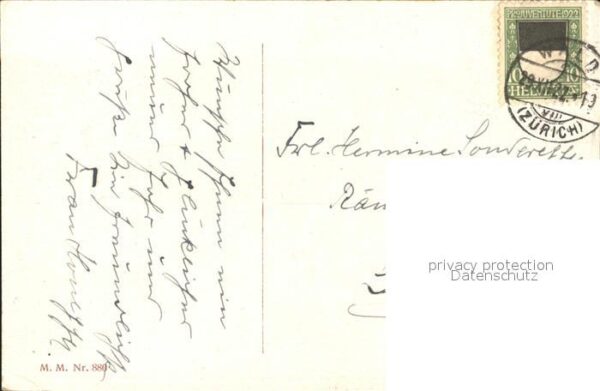 Wünsche Ihnen ein
frohes & glückliches
neues Jahr und
Grüsse Sie freundlich
Frau
M. M. Nr. 880
PRO JUVENTUTE 1922
10 10
HELVETIA
WALD
29.XII.22
VIII
(ZÜRICH)
Frl. Hermine Sonderegger
privacy protection
Datenschutz